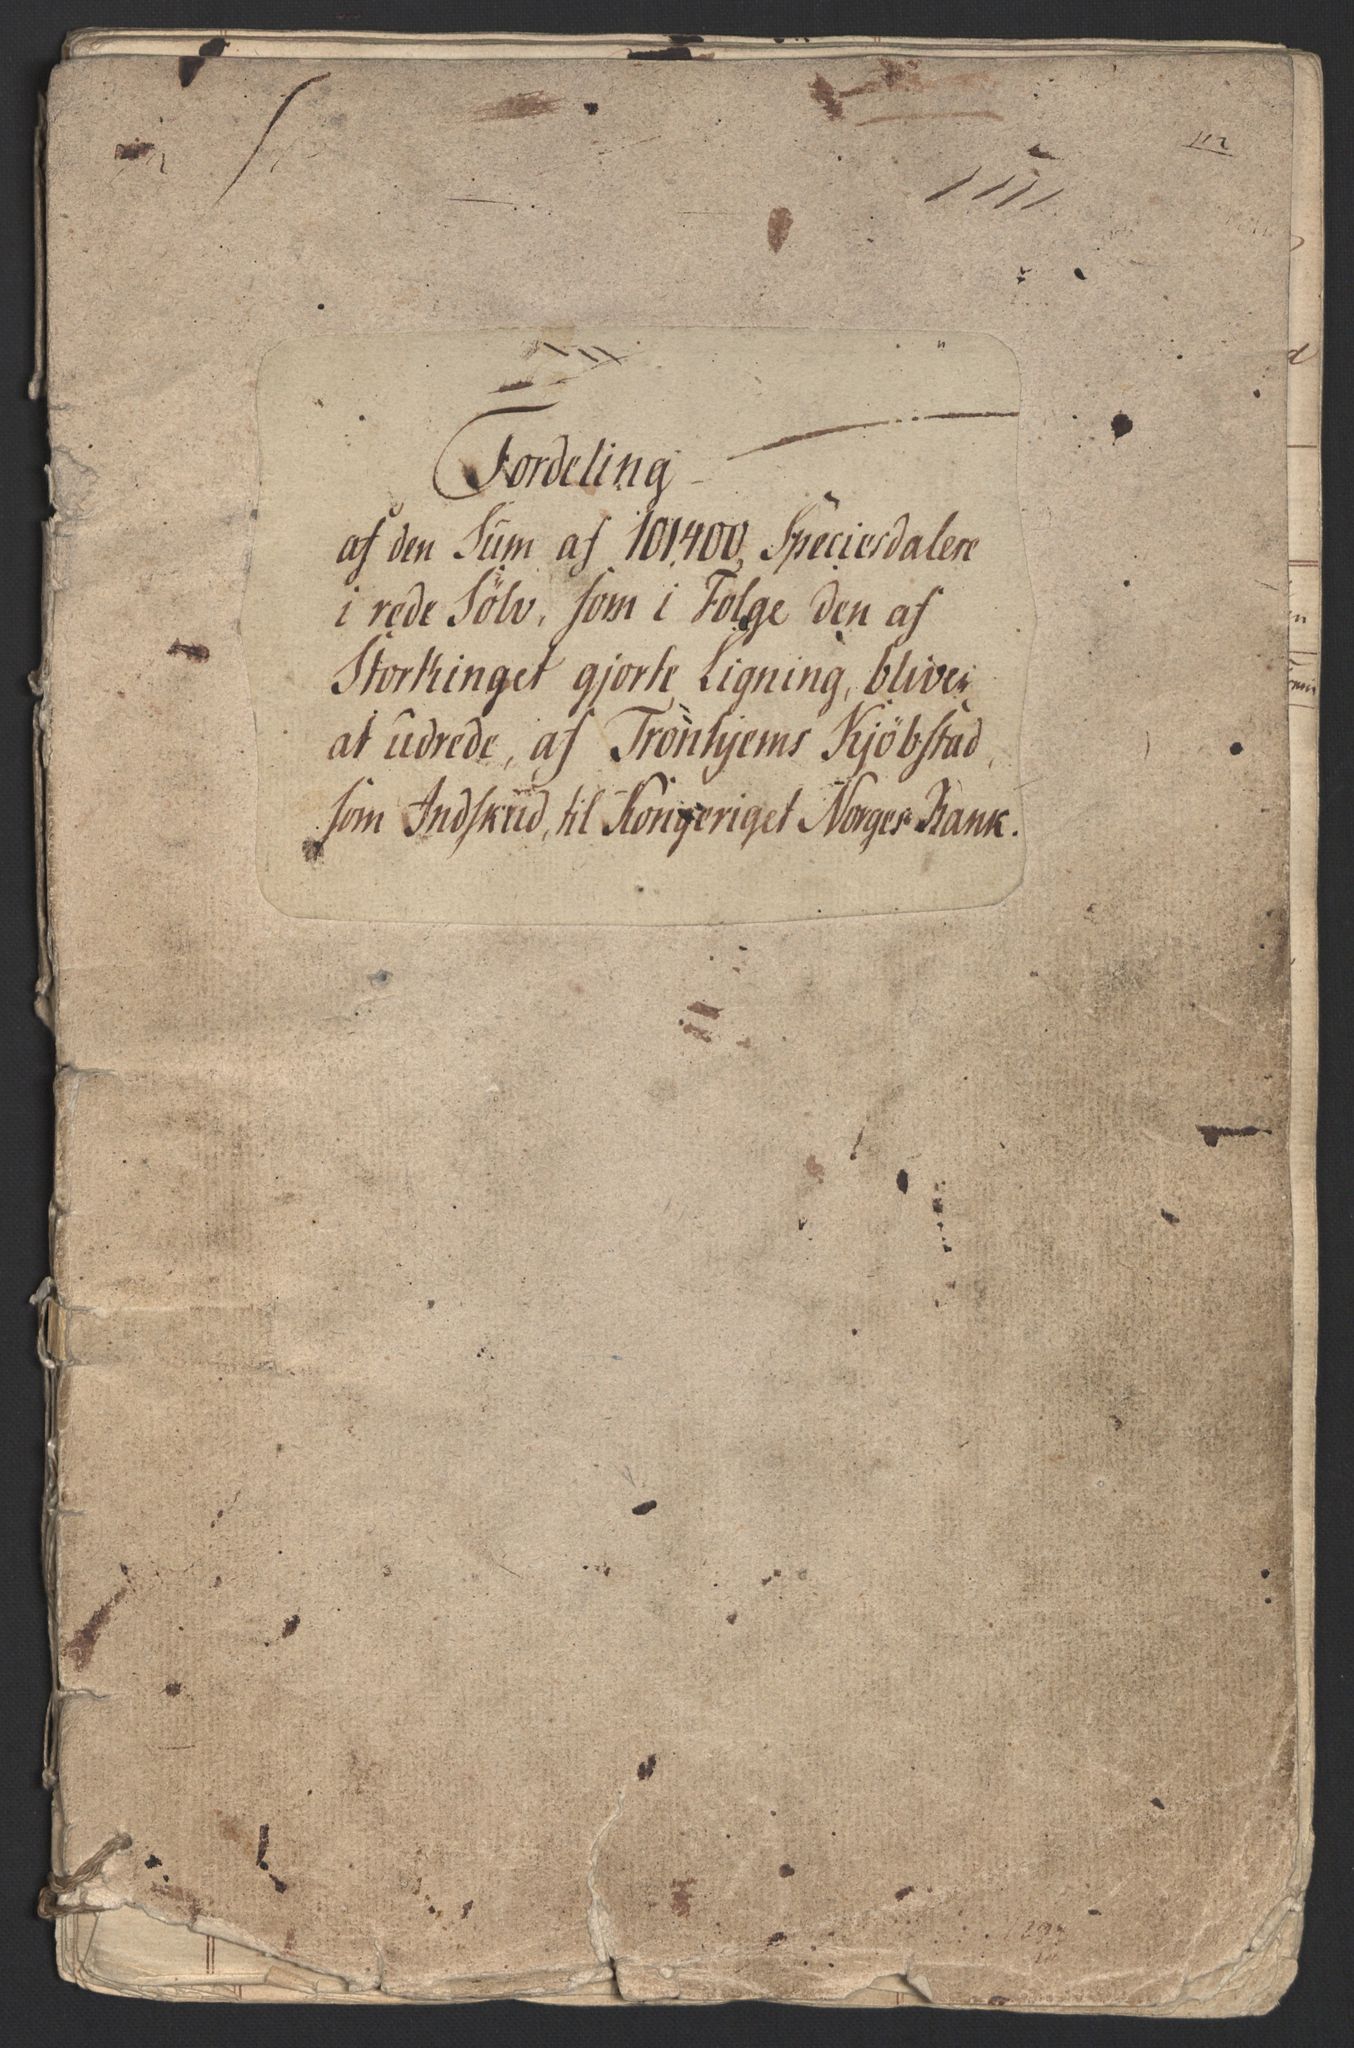 Fordeling
af den Sum af 101400 Speciesdalere
i rede Sölv, som i Følge den af
Storthinget gjorte Ligning, bliver
at udrede, af Tronhjems Kjöbstad,
som Indskud, til Kongeriget Norges Bank.